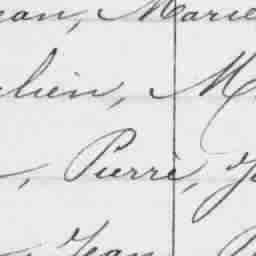 ean, Marie
lien, M
, Pierre, J
, Jean